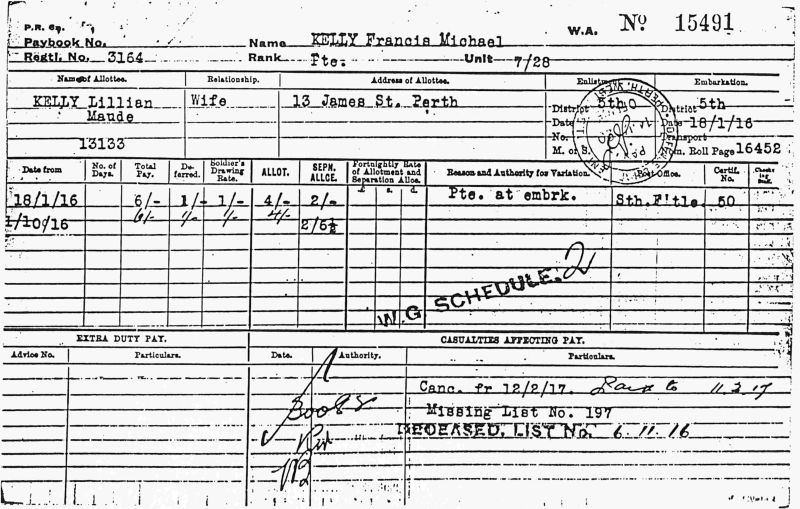 P.R. 6
Paybook No. Name KELLY Francis Michael W.A. No 15491
Regtl. No. 3164 Rank Pte. Unit 7/28
Name of Allottee. Relationship. Address of Allottee. Enlistment. Embarkation.
KELLY Lillian Wife 13 James St. Perth District 5th District 5th
Maude Date Date 18/1/16
No. Transport
13133 M. or S. Em. Roll Page 16452
Date from No. of Days. Total Pay. De-ferred. Soldier's Drawing Rate. ALLOT. SEPN. ALLCE. Fortnightly Rate of Allotment and Separation Alloc. £ s. d. Reason and Authority for Variation. Post Office. Certif. No.
18/1/16 6/- 1/- 1/- 4/- 2/- Pte. at embrk. Sth.F'tle. 50
1/10/16 6/- 1/- 1/- 4/- 2/6½
W.G SCHEDULE. 2
EXTRA DUTY PAY. CASUALTIES AFFECTING PAY.
Advice No. Particulars. Date. Authority. Particulars.
Canc. fr 12/2/17. Paid to 11.2.17
Missing List No. 197
DECEASED, LIST No. 6.11.16